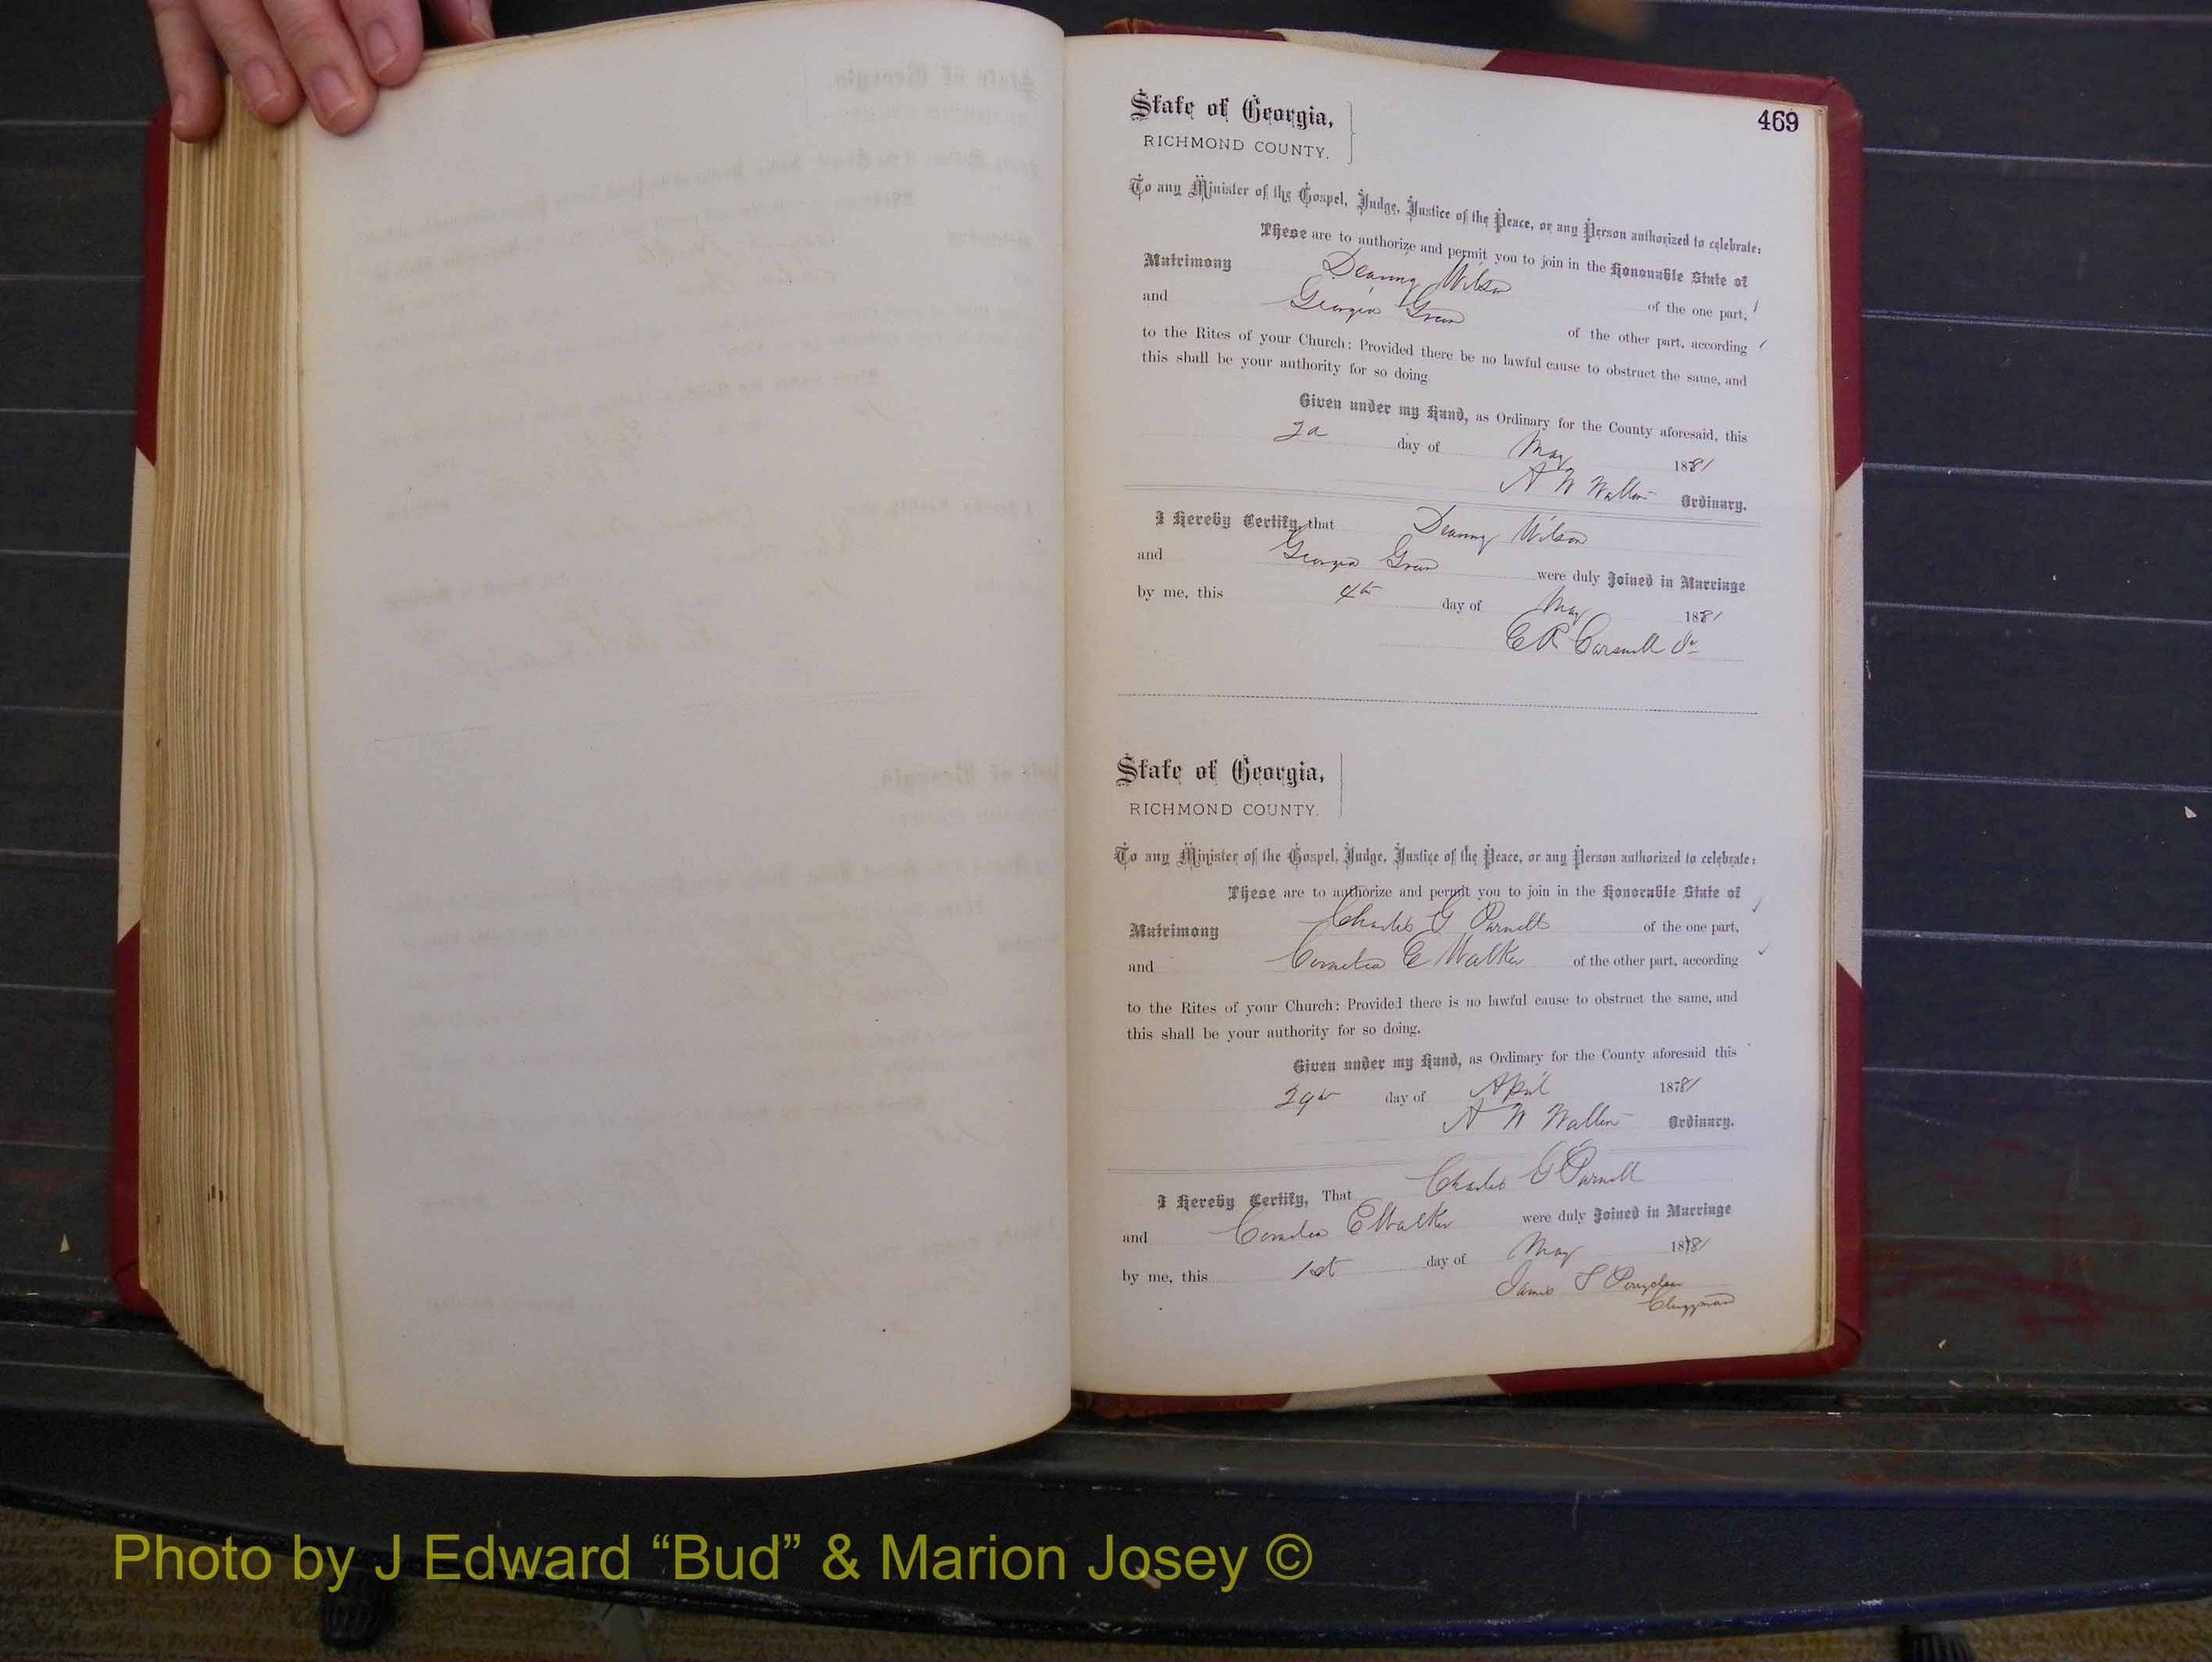 469
State of Georgia,
RICHMOND COUNTY.
To any Minister of the Gospel, Judge, Justice of the Peace, or any Person authorized to celebrate:
These are to authorize and permit you to join in the Honorable State of
Matrimony Deanny Wilson of the one part,
and Georgia Green of the other part, according
to the Rites of your Church: Provided there be no lawful cause to obstruct the same, and
this shall be your authority for so doing.
Given under my Hand, as Ordinary for the County aforesaid, this
2d day of May 1881
A W Walton Ordinary.
I Hereby Certify, that Deanny Wilson
and Georgia Green were duly Joined in Marriage
by me, this 4th day of May 1881
E R Carswell Jr
State of Georgia,
RICHMOND COUNTY.
To any Minister of the Gospel, Judge, Justice of the Peace, or any Person authorized to celebrate:
These are to authorize and permit you to join in the Honorable State of
Matrimony Charles G Purnell of the one part,
and Cornelia E Walker of the other part, according
to the Rites of your Church: Provided there is no lawful cause to obstruct the same, and
this shall be your authority for so doing.
Given under my Hand, as Ordinary for the County aforesaid this
29th day of April 1881
A W Walton Ordinary.
I Hereby Certify, That Charles G Purnell
and Cornelia E Walker were duly Joined in Marriage
by me, this 1st day of May 1881
James T
Clergyman
Photo by J Edward “Bud” & Marion Josey ©